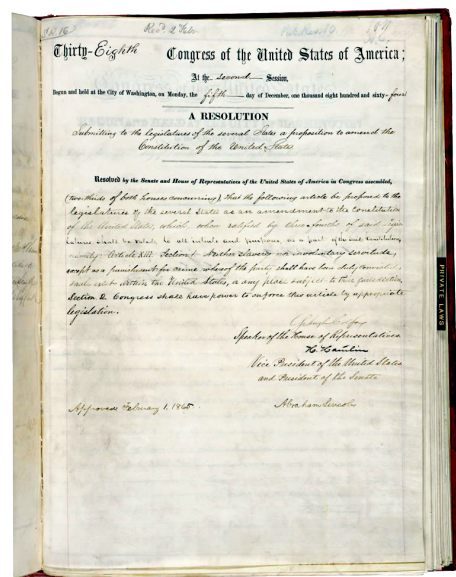 Thirty-Eighth Congress of the United States of America;
At the second Session,
Begun and held at the City of Washington, on Monday, the fifth day of December, one thousand eight hundred and sixty-four
A RESOLUTION
Submitting to the legislatures of the several States a proposition to amend the
Constitution of the United States
Resolved by the Senate and House of Representatives of the United States of America in Congress assembled,
(two-thirds of both houses concurring), that the following article be proposed to the
legislatures of the several States as an amendment to the Constitution
of the United States, which, when ratified by three-fourths of said legis-
latures shall be valid, to all intents and purposes, as a part of the said Constitution,
namely: Article XIII. Section 1. Neither slavery nor involuntary servitude,
except as a punishment for crime whereof the party shall have been duly convicted,
shall exist within the United States, or any place subject to their jurisdiction.
Section 2. Congress shall have power to enforce this article by appropriate
legislation.
Speaker of the House of Representatives
H. Hamlin
Vice President of the United States
and President of the Senate
Approved February 1. 1865. Abraham Lincoln
PRIVATE LAWS